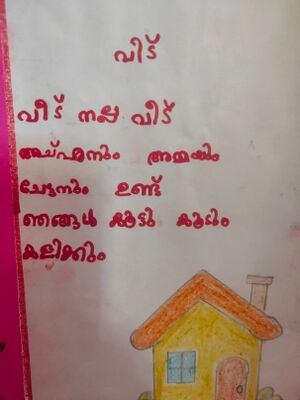 വീട്
വീട് നല്ല വീട്
അച്ഛനും അമ്മയും
ചേട്ടനും ഉണ്ട്
ഞങ്ങൾ കൂട്ടു കൂടും
കളിക്കും